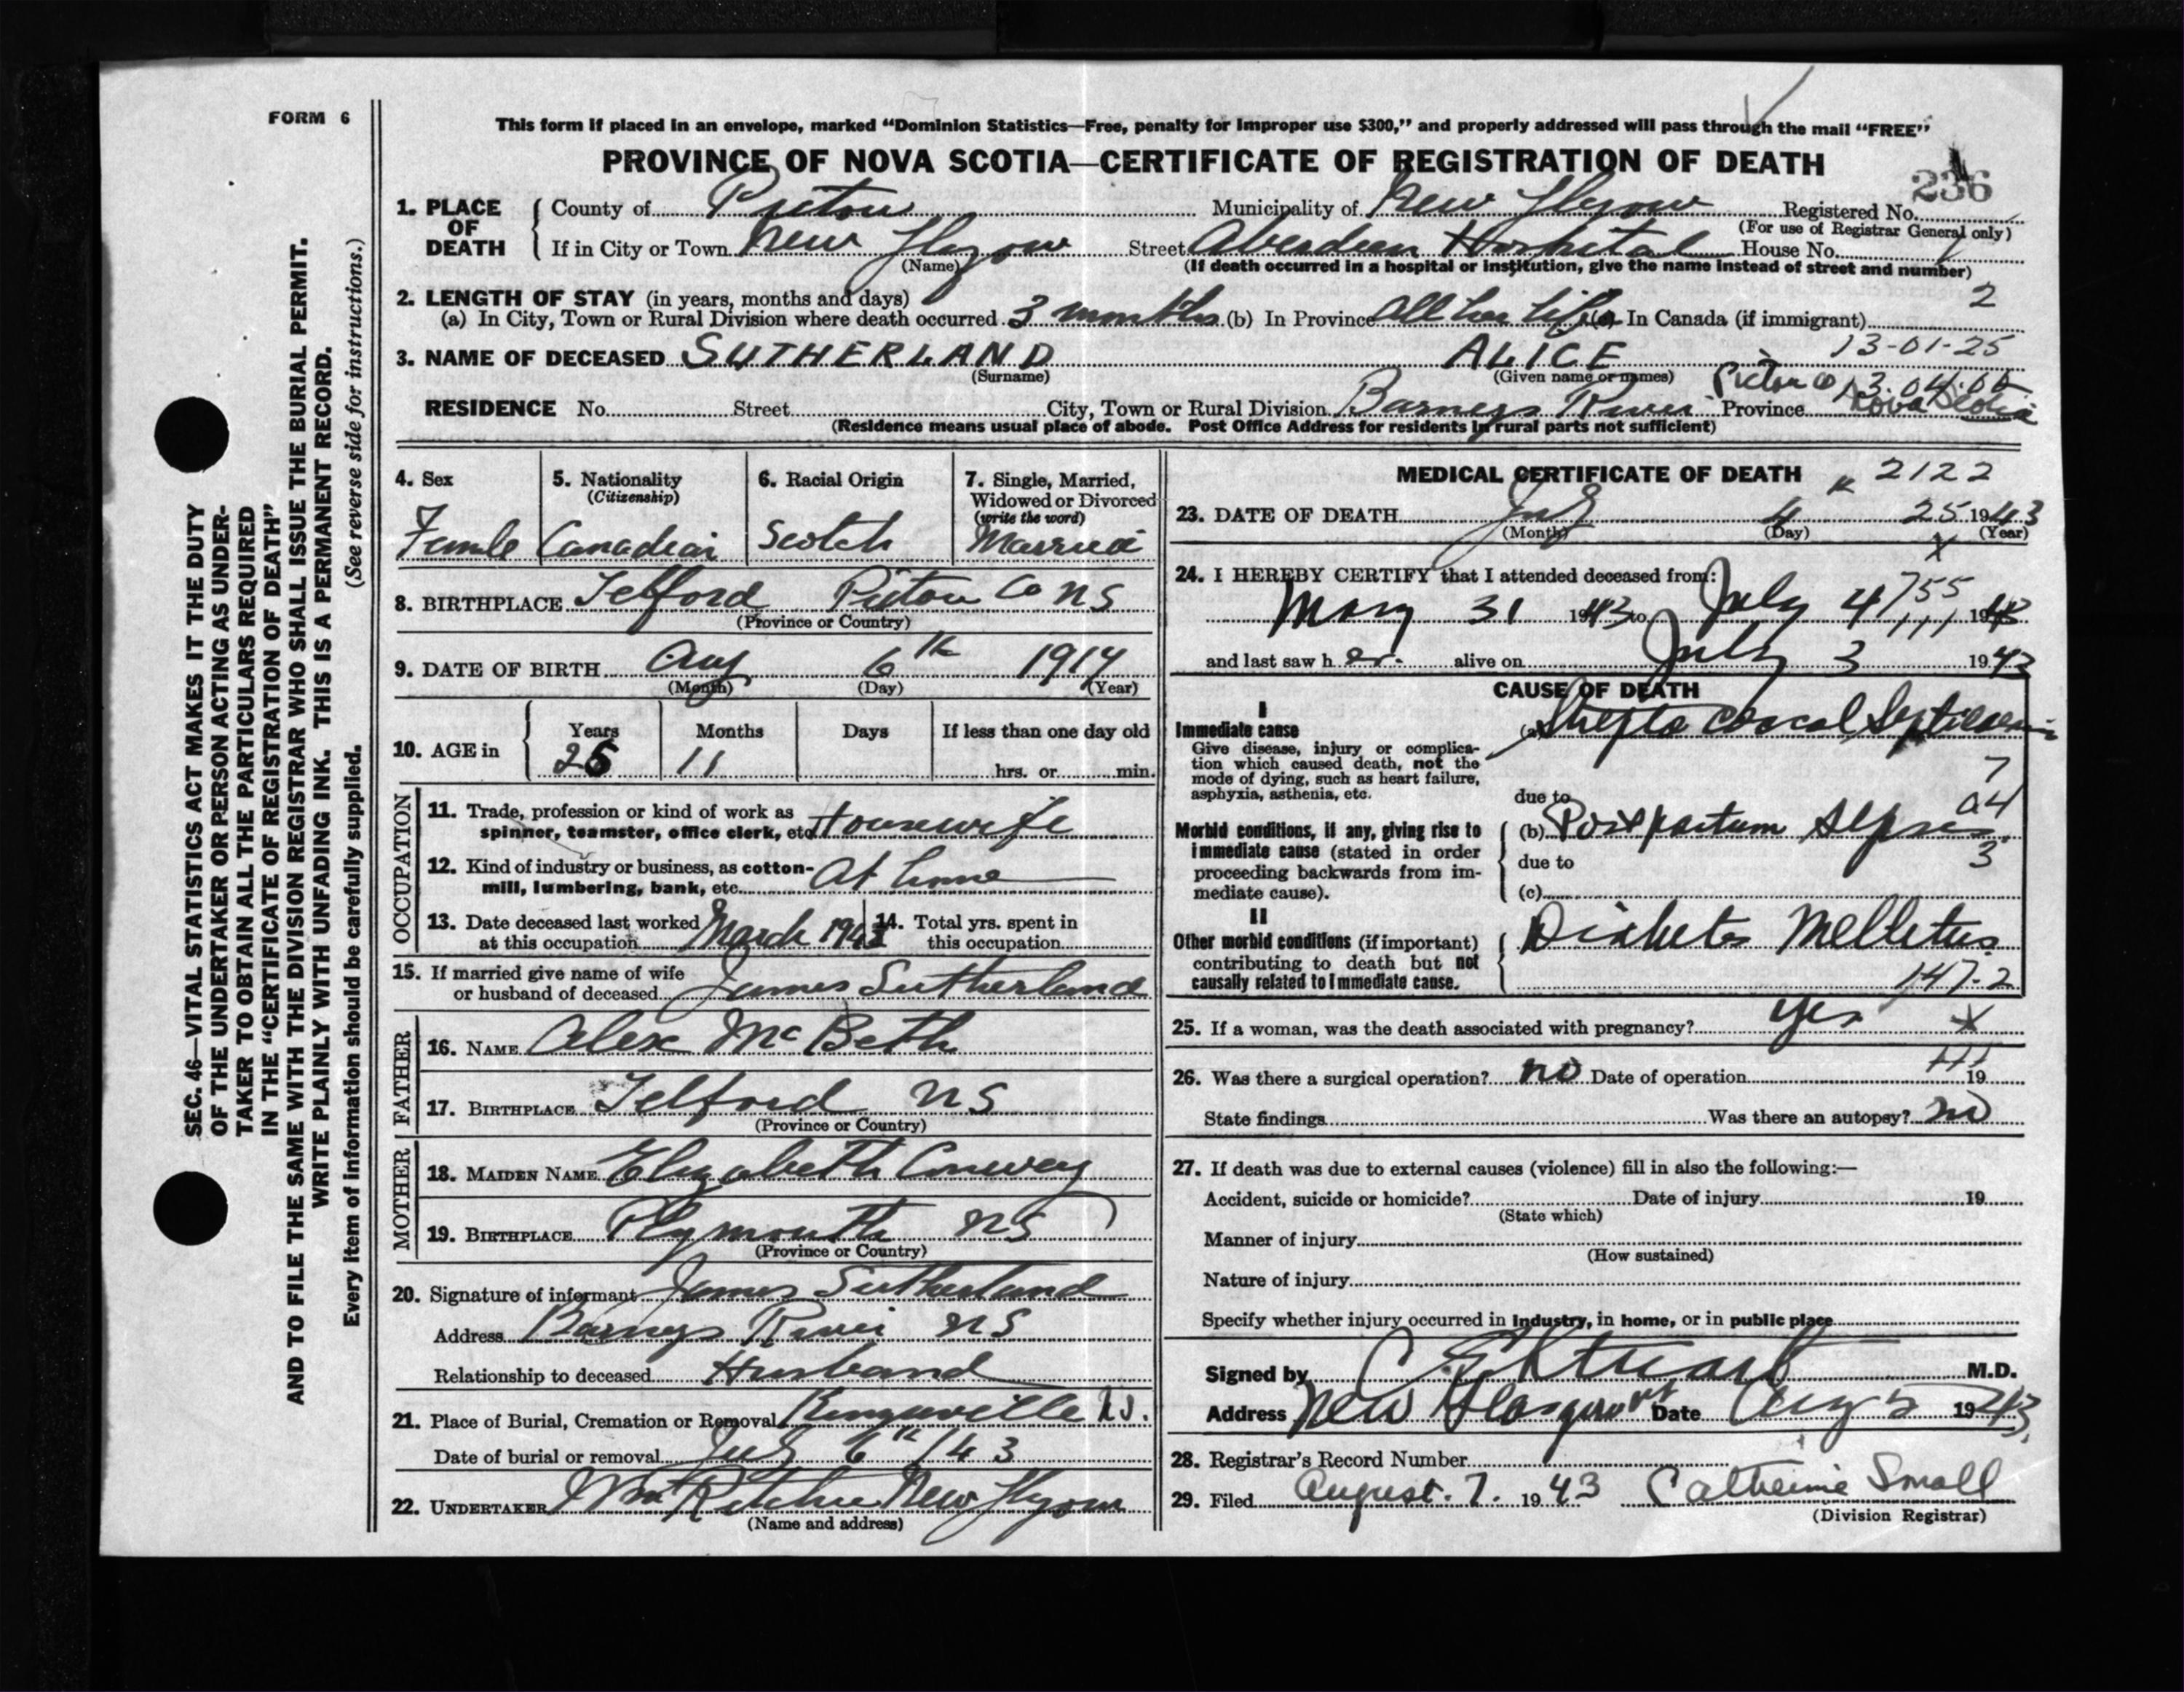 FORM 6
This form if placed in an envelope, marked “Dominion Statistics—Free, penalty for improper use $300,” and properly addressed will pass through the mail “FREE”
PROVINCE OF NOVA SCOTIA—CERTIFICATE OF REGISTRATION OF DEATH
236
1. PLACE OF DEATH County of Pictou Municipality of New Glasgow Registered No.
(For use of Registrar General only)
If in City or Town New Glasgow Street Aberdeen Hospital House No.
(Name) (If death occurred in a hospital or institution, give the name instead of street and number)
2. LENGTH OF STAY (in years, months and days) 2
(a) In City, Town or Rural Division where death occurred 3 months (b) In Province All her life (c) In Canada (if immigrant)
3. NAME OF DECEASED SUTHERLAND ALICE 13-01-25
(Surname) (Given name or names) Pictou Co 13.04.00
RESIDENCE No. Street City, Town or Rural Division Barneys River Province Nova Scotia
(Residence means usual place of abode. Post Office Address for residents in rural parts not sufficient)
4. Sex 5. Nationality (Citizenship) 6. Racial Origin 7. Single, Married, Widowed or Divorced (write the word)
Female Canadian Scotch Married
8. BIRTHPLACE Telford Pictou Co NS
(Province or Country)
9. DATE OF BIRTH Aug 6th 1917
(Month) (Day) (Year)
10. AGE in Years Months Days If less than one day old
25 11 hrs. or min.
OCCUPATION
11. Trade, profession or kind of work as
spinner, teamster, office clerk, etc. Housewife
12. Kind of industry or business, as cotton-
mill, lumbering, bank, etc. At home
13. Date deceased last worked at this occupation March 1943 14. Total yrs. spent in this occupation
15. If married give name of wife
or husband of deceased James Sutherland
FATHER
16. NAME Alex McBeth
17. BIRTHPLACE Telford NS
(Province or Country)
MOTHER
18. MAIDEN NAME Elizabeth Conway
19. BIRTHPLACE Plymouth NS
(Province or Country)
20. Signature of informant James Sutherland
Address Barneys River NS
Relationship to deceased Husband
21. Place of Burial, Cremation or Removal NS.
Date of burial or removal July 6th/43
22. UNDERTAKER Wm Ritchie New Glasgow
(Name and address)
MEDICAL CERTIFICATE OF DEATH K 2122
23. DATE OF DEATH July 4 25 1943
(Month) (Day) (Year)
X
24. I HEREBY CERTIFY that I attended deceased from:
May 31 1943 to July 4 755 1943
111
and last saw her alive on July 3 1943
CAUSE OF DEATH
I
Immediate cause (a) Strepto coccal Septicaemia
Give disease, injury or complica-
tion which caused death, not the
mode of dying, such as heart failure,
asphyxia, asthenia, etc.
7
due to 04
Morbid conditions, if any, giving rise to
immediate cause (stated in order
proceeding backwards from im-
mediate cause).
(b) Postpartum Sepsis
due to 3
(c)
II
Other morbid conditions (if important)
contributing to death but not
causally related to immediate cause.
Diabetes Melletus
147.2
25. If a woman, was the death associated with pregnancy? yes X
26. Was there a surgical operation? no Date of operation 19
State findings Was there an autopsy? no
27. If death was due to external causes (violence) fill in also the following:—
Accident, suicide or homicide? Date of injury 19
(State which)
Manner of injury
(How sustained)
Nature of injury
Specify whether injury occurred in industry, in home, or in public place
Signed by C E Stuart M.D.
Address New Glasgow Date Aug 5 1943.
28. Registrar's Record Number
29. Filed August. 7. 1943 Catherine Small
(Division Registrar)
SEC. 46—VITAL STATISTICS ACT MAKES IT THE DUTY
OF THE UNDERTAKER OR PERSON ACTING AS UNDER-
TAKER TO OBTAIN ALL THE PARTICULARS REQUIRED
IN THE “CERTIFICATE OF REGISTRATION OF DEATH”
AND TO FILE THE SAME WITH THE DIVISION REGISTRAR WHO SHALL ISSUE THE BURIAL PERMIT.
WRITE PLAINLY WITH UNFADING INK. THIS IS A PERMANENT RECORD.
Every item of information should be carefully supplied. (See reverse side for instructions.)